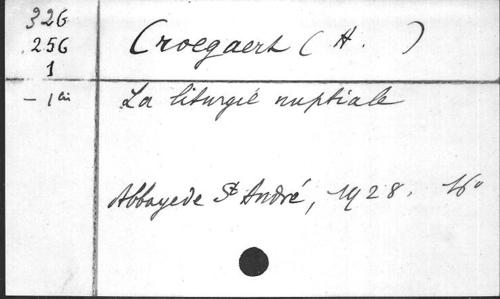 326
256
1
- 1 ai
Croegaert (A. )
La liturgie nuptiale
Abbaye de St André, 1928. 16°